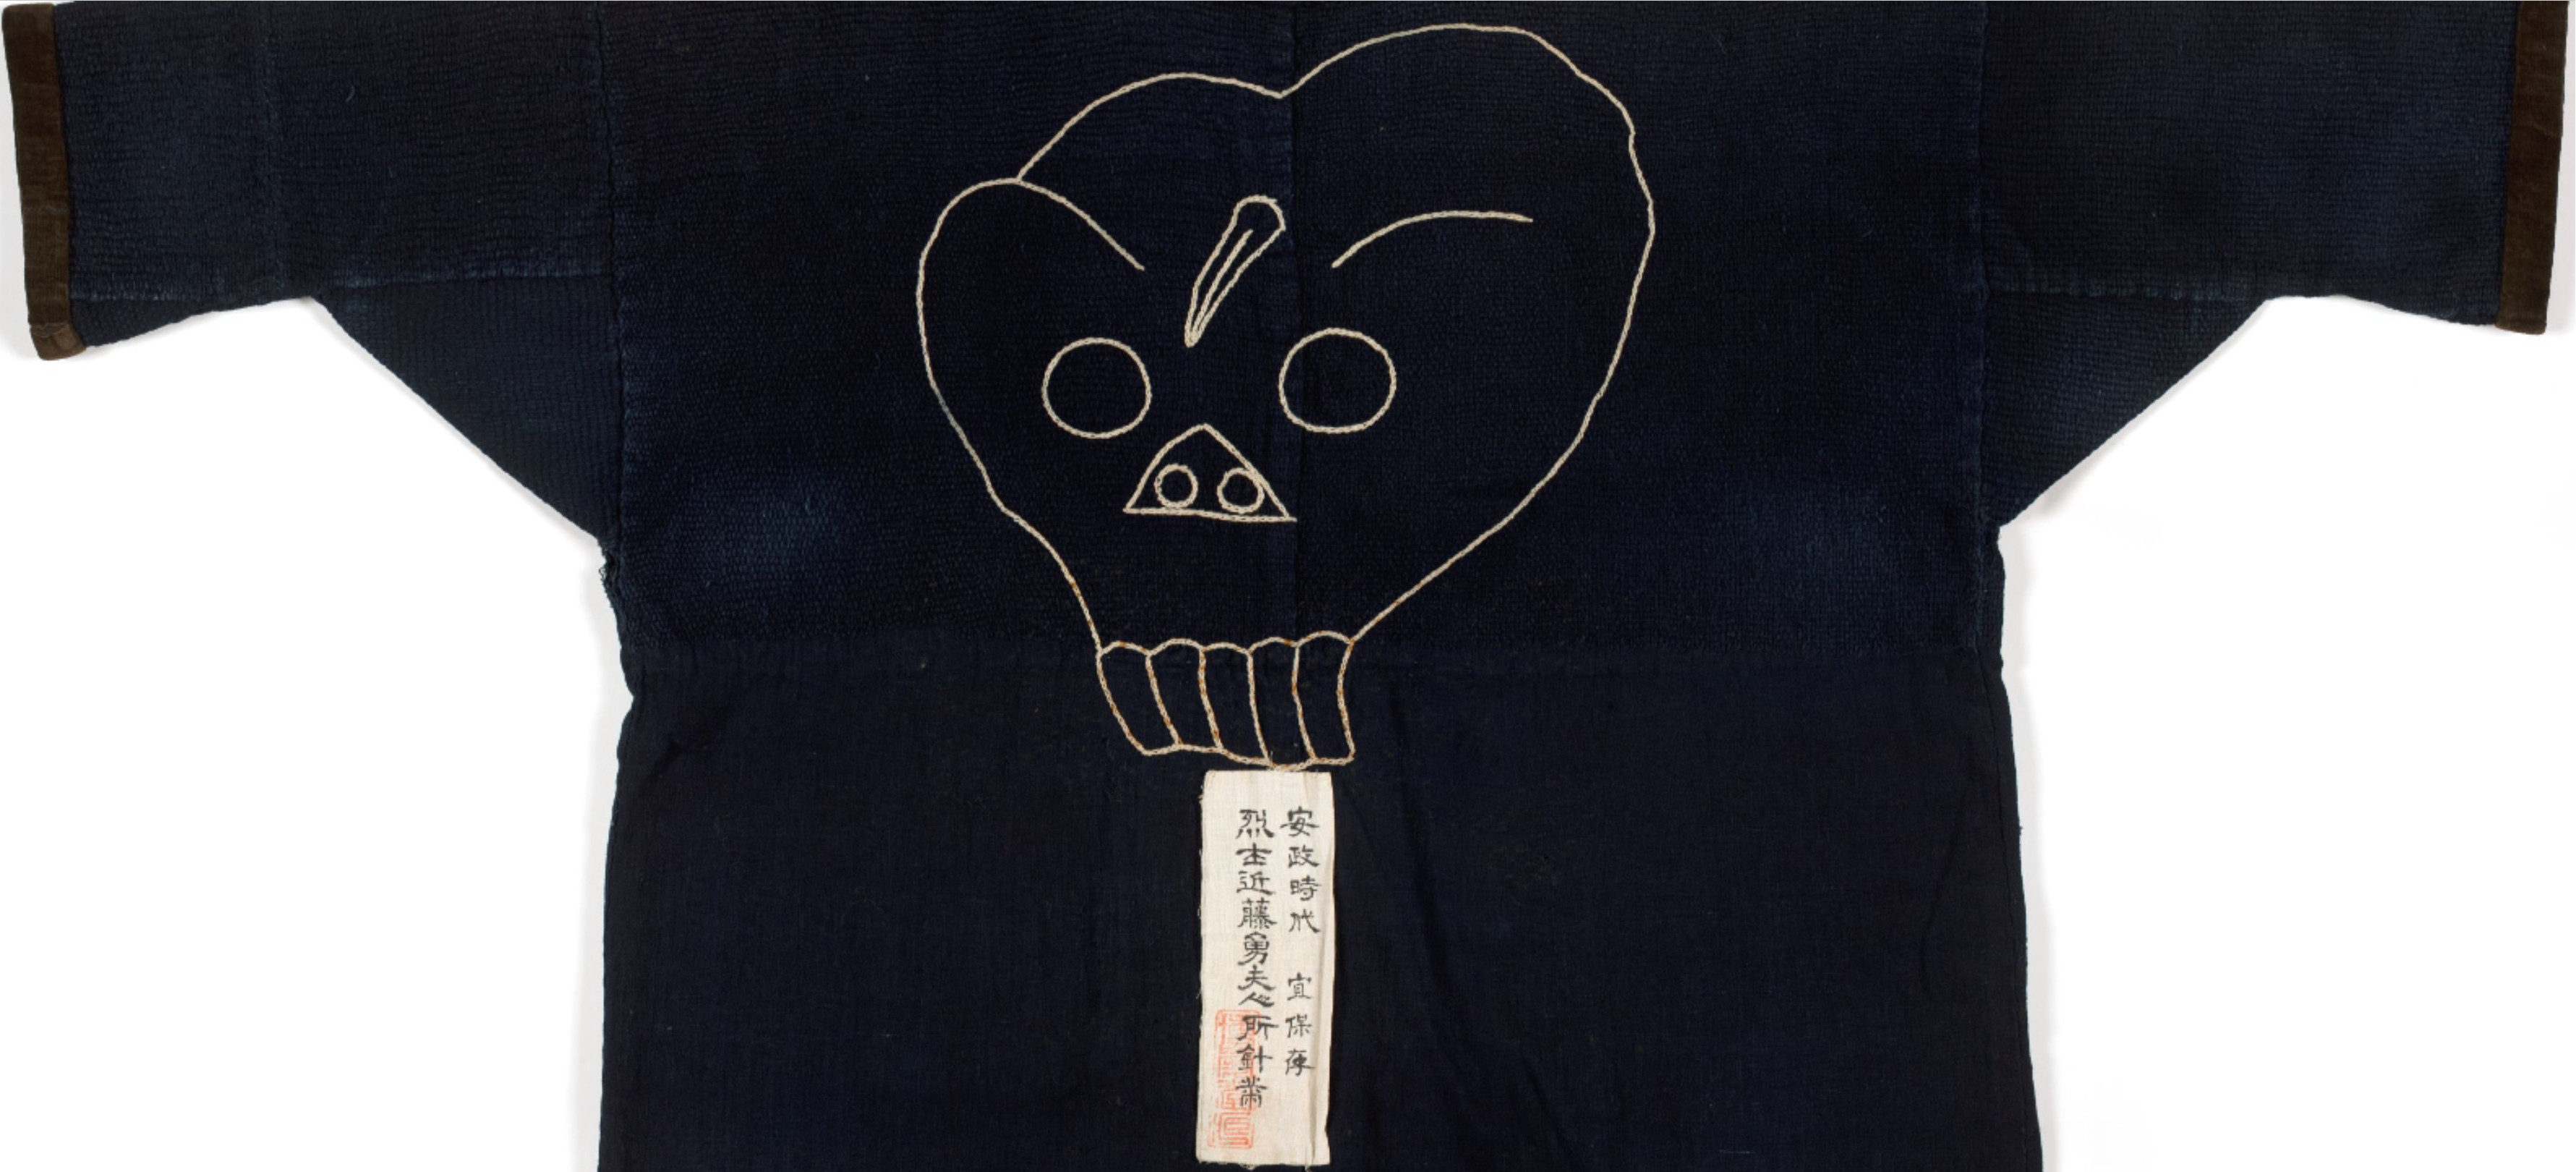 安政時代　宜保存
烈士近藤勇夫心所針黹